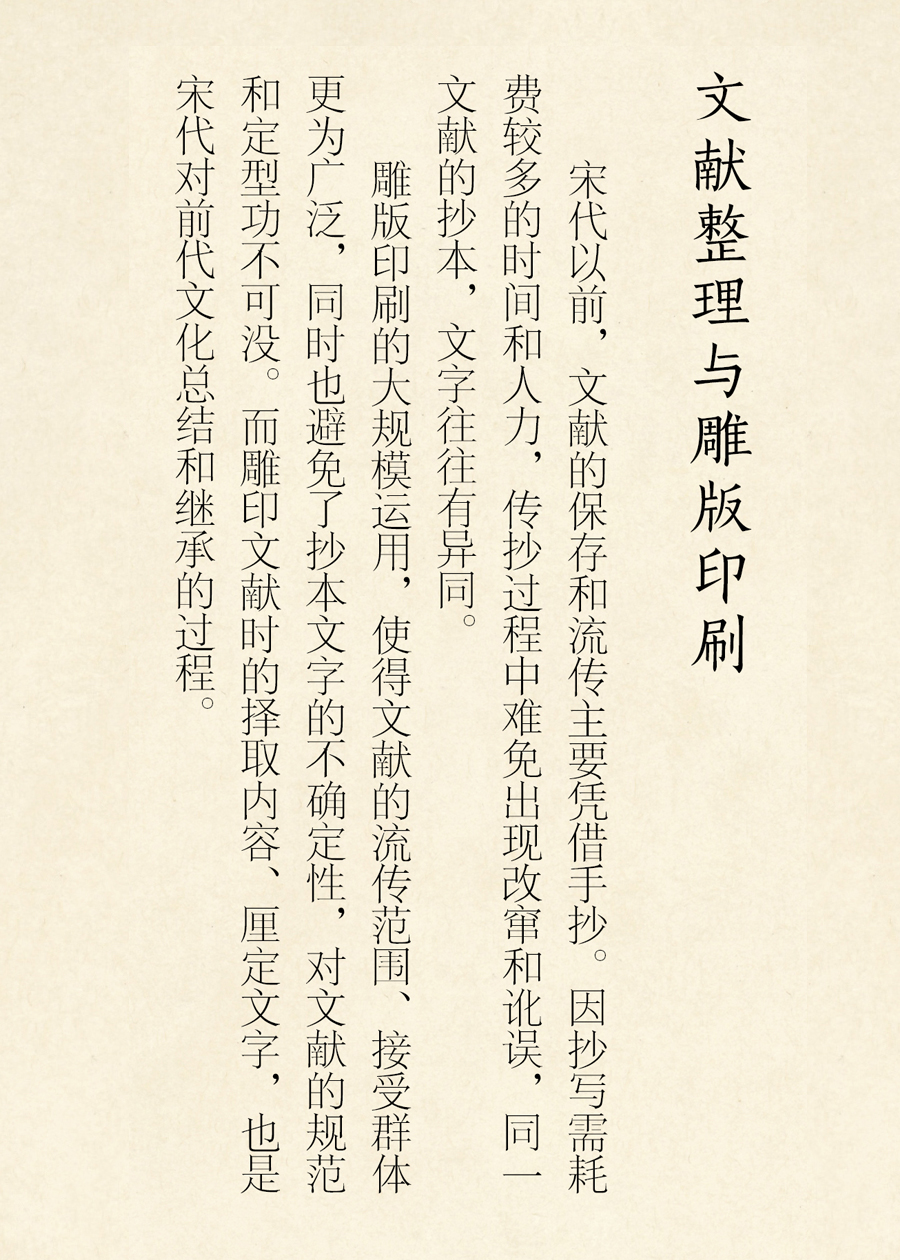 文献整理与雕版印刷
宋代以前，文献的保存和流传主要凭借手抄。因抄写需耗
费较多的时间和人力，传抄过程中难免出现改窜和讹误，同一
文献的抄本，文字往往有异同。
雕版印刷的大规模运用，使得文献的流传范围、接受群体
更为广泛，同时也避免了抄本文字的不确定性，对文献的规范
和定型功不可没。而雕印文献时的择取内容、厘定文字，也是
宋代对前代文化总结和继承的过程。